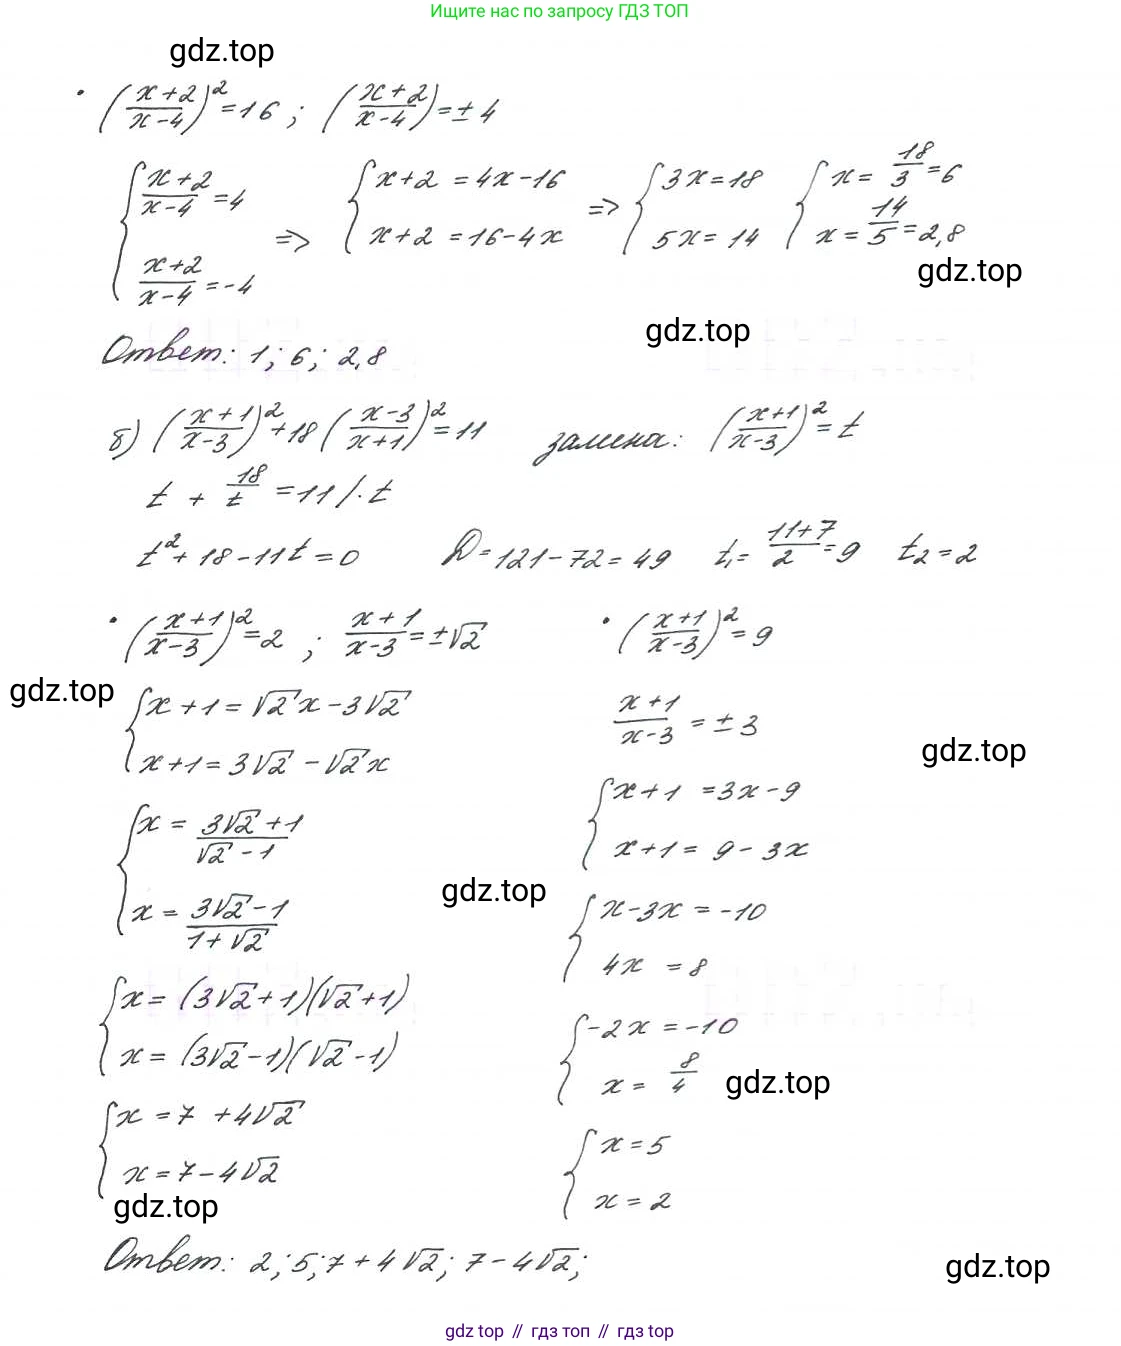 Ищите нас по запросу ГДЗ.ТОП
gdz.top
• ((x+2)/(x-4))² = 16 ; ((x+2)/(x-4)) = ± 4
{ (x+2)/(x-4) = 4 ; (x+2)/(x-4) = -4 => { x+2 = 4x-16 ; x+2 = 16-4x => { 3x=18 ; 5x=14 { x = 18/3 = 6 ; x = 14/5 = 2,8
gdz.top
gdz.top
Ответ: 1; 6; 2,8
б) ((x+1)/(x-3))² + 18 ((x-3)/(x+1))² = 11 замена: ((x+1)/(x-3))² = t
t + 18/t = 11 /· t
t² + 18 - 11t = 0 D = 121-72 = 49 t₁ = (11+7)/2 = 9 t₂ = 2
• ((x+1)/(x-3))² = 2 ; (x+1)/(x-3) = ±√2
gdz.top
{ x+1 = √2x - 3√2
x+1 = 3√2 - √2x
{ x = (3√2+1)/(√2-1)
x = (3√2-1)/(1+√2)
{ x = (3√2+1)(√2+1)
x = (3√2-1)(√2-1)
{ x = 7 + 4√2
x = 7 - 4√2
gdz.top
• ((x+1)/(x-3))² = 9
(x+1)/(x-3) = ± 3
gdz.top
{ x+1 = 3x-9
x+1 = 9-3x
gdz.top
{ x-3x = -10
4x = 8
{ -2x = -10
x = 8/4
gdz.top
{ x = 5
x = 2
Ответ: 2; 5; 7+4√2; 7-4√2;
gdz.top
gdz top // гдз топ // гдз top